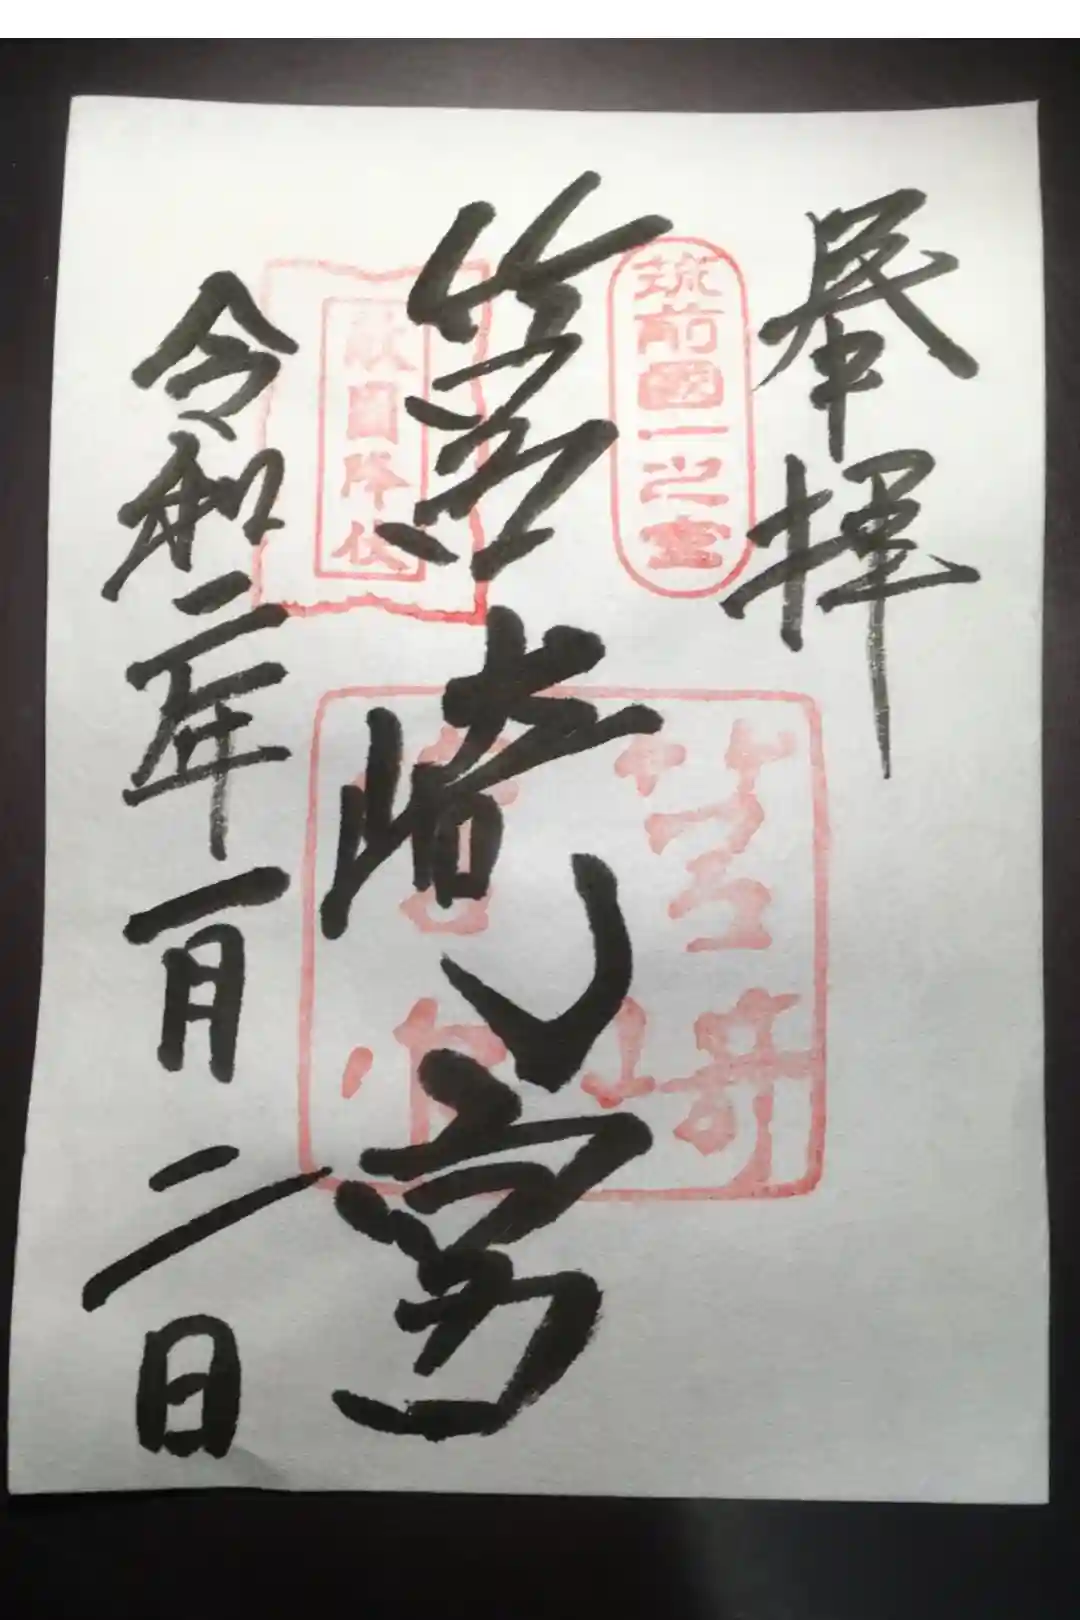 奉拝
筑前國一之宮
筥崎宮
敵國降伏
筥崎
宮印
令和二年一月二日